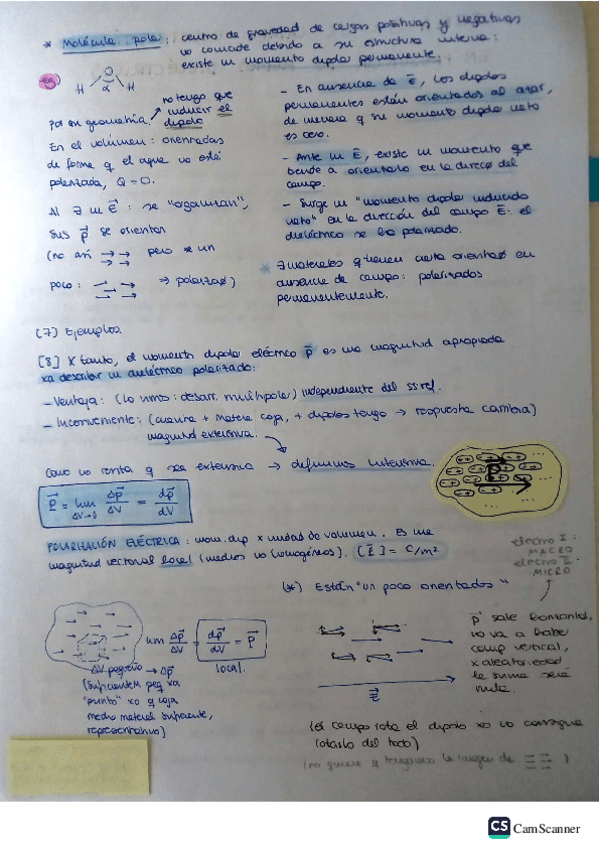 * Molécula polar: centro de gravedad de cargas positivas y negativas
no coincide debido a su estructura interna:
existe un momento dipolar permanente.
eg)
O
H α H
no tengo que
inducir el
dipolo
Por su geometría.
En el volumen: orientadas
de forma q el agua no esté
polarizada, Q = 0.
Al ∃ un E: se "organizan",
sus p se orientan
(no así →→ pero se un
poco: → polarizaº)
- En ausencia de E, los dipolos
permanentes están orientados al azar,
de manera q su momento dipolar neto
es cero.
- Ante un E, existe un momento que
tiende a orientarlo en la direcº del
campo.
- Surge un "momento dipolar inducido
neto" en la dirección del campo E: el
dieléctrico se ha polarizado.
* ∃ materiales q tienen cierta orientaº en
ausencia de campo: polarizados
permanentemente.
[7] Ejemplos.
[8] X tanto, el momento dipolar eléctrico p es una magnitud apropiada
xa describir un dieléctrico polarizado:
- Ventaja: (lo vimos: desarr. multipolar) independiente del ss ref.
- Inconveniente: (cuanta + materia coja, + dipolos tengo → respuesta cambia)
magnitud extensiva.
Como no renta q sea extensiva → definimos intensiva.
P = lim ΔV→0 Δp/ΔV = dp/dV
P
POLARIZACIÓN ELÉCTRICA: mom. dip x unidad de volumen. Es una
magnitud vectorial local (medios no homogéneos). [P] = C/m²
electro I:
MACRO
electro II:
MICRO
(*) Están "un poco orientados"
lim Δp/ΔV = dp/dV = P
local.
ΔV pequeño → Δp
(suficientem peq xa
"punto" xo q coja
medio material suficiente,
representativo)
E
p sale horizontal,
no va a haber
comp vertical,
x aleatoriedad
la suma será
nula.
(el campo rota el dipolo xo no consigue
rotarlo del todo)
(no quiere q tengamos la imagen de )
CS CamScanner